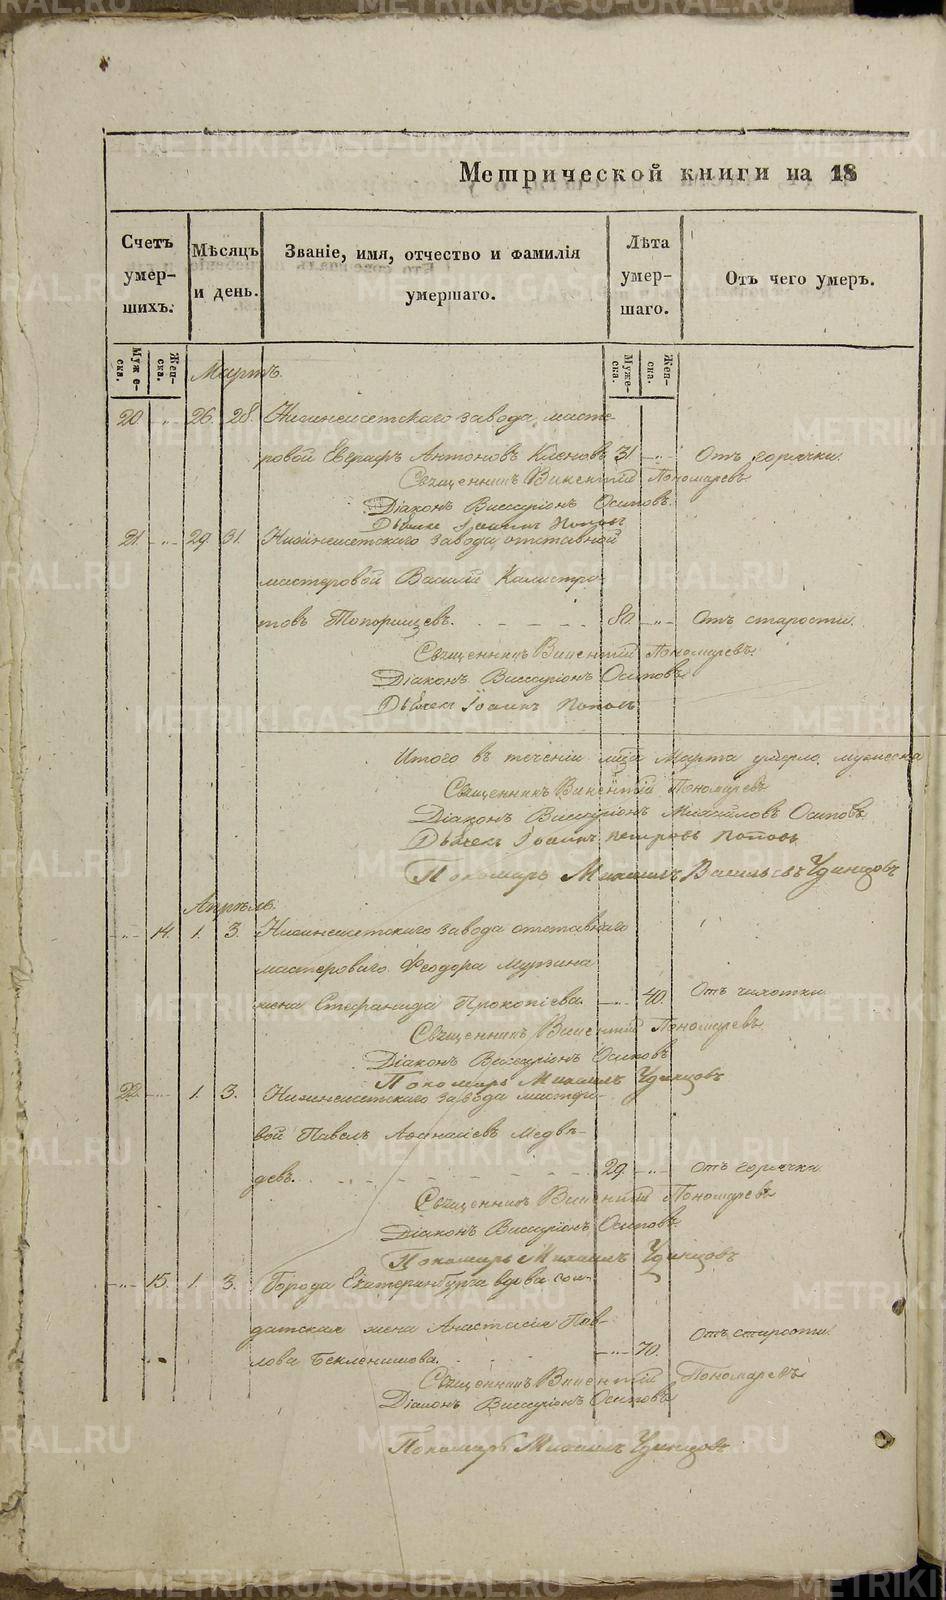 Метрической книги на 18
Счетъ умер-шихъ.
Мѣсяцъ и день.
Званіе, имя, отчество и фамилія умершаго.
Лѣта умер-шаго.
Отъ чего умеръ.
Муже-ска.
Жен-ска.
Муже-ска.
Жен-ска.
Мартъ.
20. 26. 28. Нижнеисетскаго завода масте-
ровой Евграфъ Антоновъ 31 Отъ горячки.
Священникъ Викентій Пономаревъ
Діаконъ Виссаріонъ Осиповъ.
Дьячекъ Іоаннъ Поповъ
21. 29. 31. Нижнеисетскаго завода отставной
мастеровой Василій Калистра-
товъ Топорищевъ. 80. Отъ старости.
Священникъ Викентій Пономаревъ.
Діаконъ Виссаріонъ Осиповъ
Дьячекъ Іоаннъ Поповъ
Итого въ теченіи мѣца Марта умерло мужеска
Священникъ Викентій Пономаревъ
Діаконъ Виссаріонъ Михайловъ Осиповъ
Дьячекъ Іоаннъ Петровъ Поповъ
Пономарь Михаилъ Васильевъ Чудинцовъ
Апрѣль.
14. 1. 3. Нижнеисетскаго завода отставнаго
мастероваго Феодора Мурзина
жена Стефанида Прокопіева. 40. Отъ чахотки
Священникъ Викентій Пономаревъ
Діаконъ Виссаріонъ Осиповъ
Пономарь Михаилъ Чудинцовъ
22. 1. 3. Нижнеисетскаго завода мастеро-
вой Павелъ Афанасіевъ Медвѣ-
девъ. 29. отъ горячки
Священникъ Викентій Пономаревъ
Діаконъ Виссаріонъ Осиповъ
Пономарь Михаилъ Чудинцовъ
15. 1. 3. Города Екатеринбурга вдова сол-
датская жена Анастасія Пав-
лова Бекленищова. 70. Отъ старости.
Священникъ Викентій Пономаревъ
Діаконъ Виссаріонъ Осиповъ
Пономарь Михаилъ Чудинцовъ
METRIKI.GASO-URAL.RU